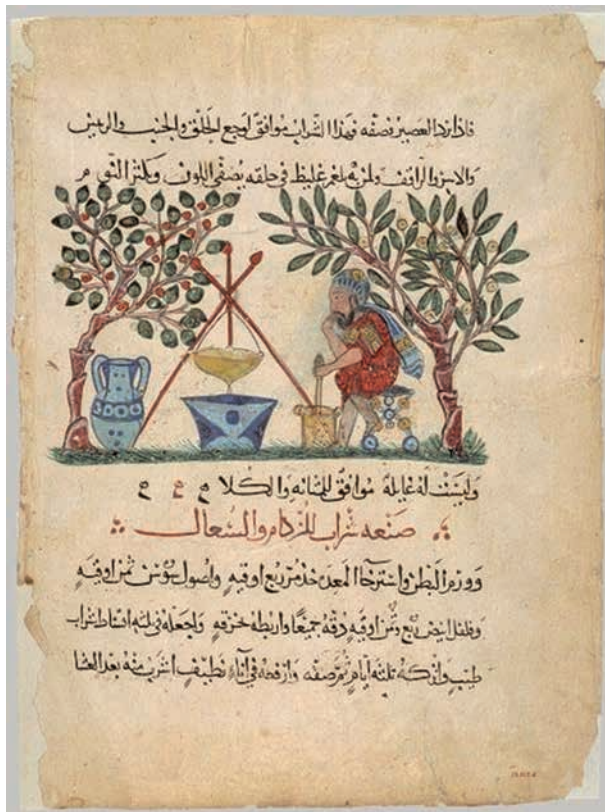 فاذا برد العصير فصفه فهذا الشراب موافق لوجع الحلق والجنب
ولمن به بلغم غليظ في حلقه يصفي اللون ويكثر النوم
وليست له غايلة موافق للمثانه والكلا
صنعه شراب للزكام والسعال
وورم البطن واسترخا المعده خذ مر ربع اوقيه واصول سوسن ثمن اوقيه
وفلفل ابيض ربع وثمن اوقيه دقه جميعا واربطه خرقه واجعله في ثلثه اقساط شراب
طيب واتركه ثلثه ايام ثم صفه وارفعه في اناء نظيف اشرب منه بعد العشا